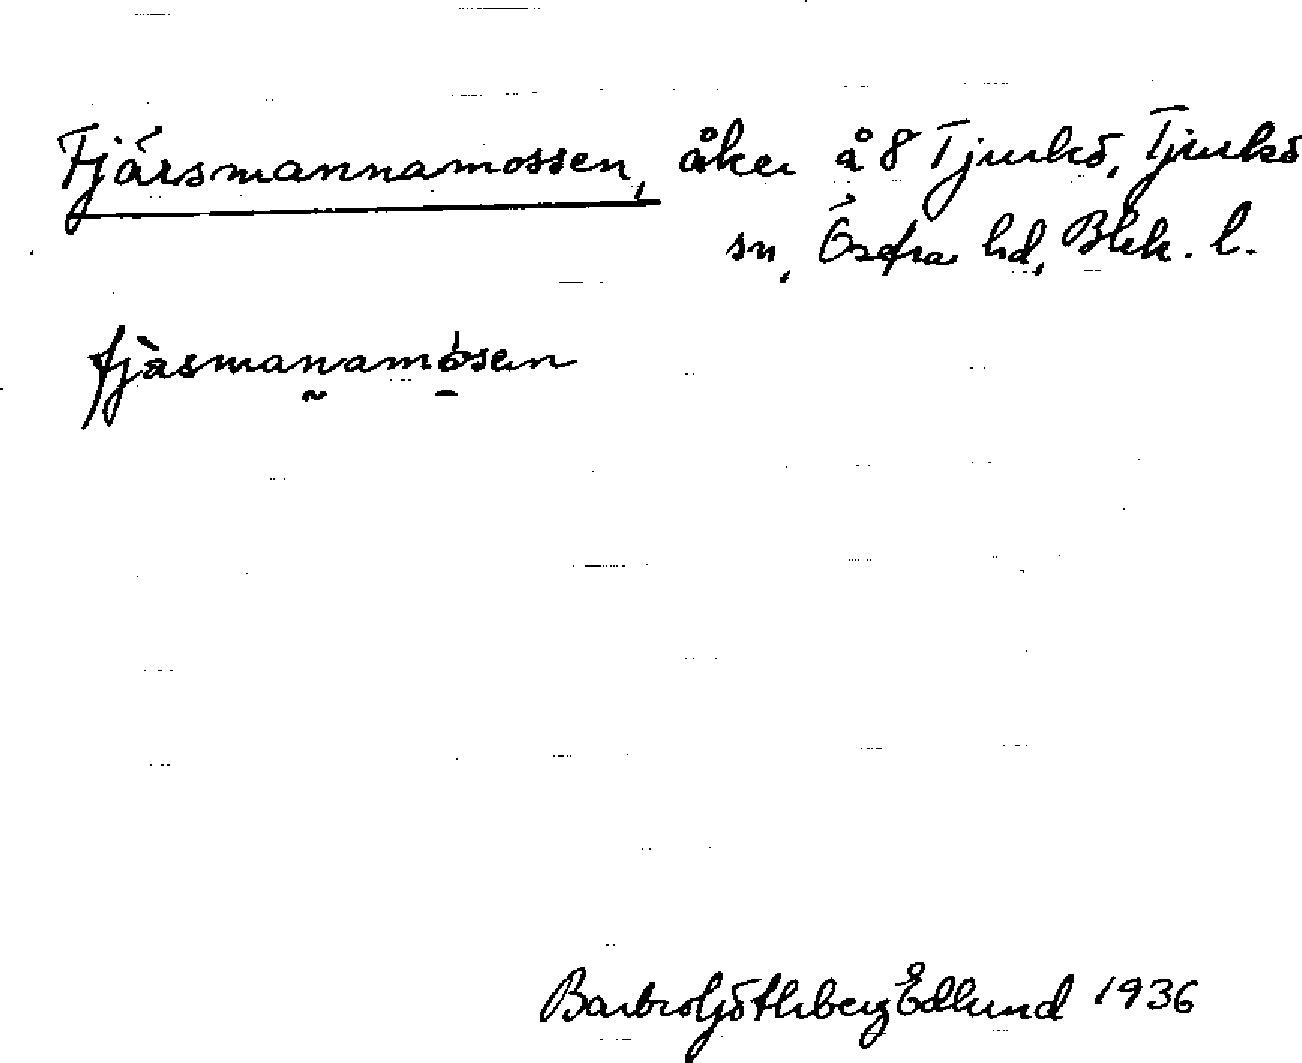 Fjärsmannamossen, åker å 8 Tjurkö, Tjurkö
sn, Östra hd, Blek. l.
fjäsmanamosen
Barbro Göthberg Edlund 1936